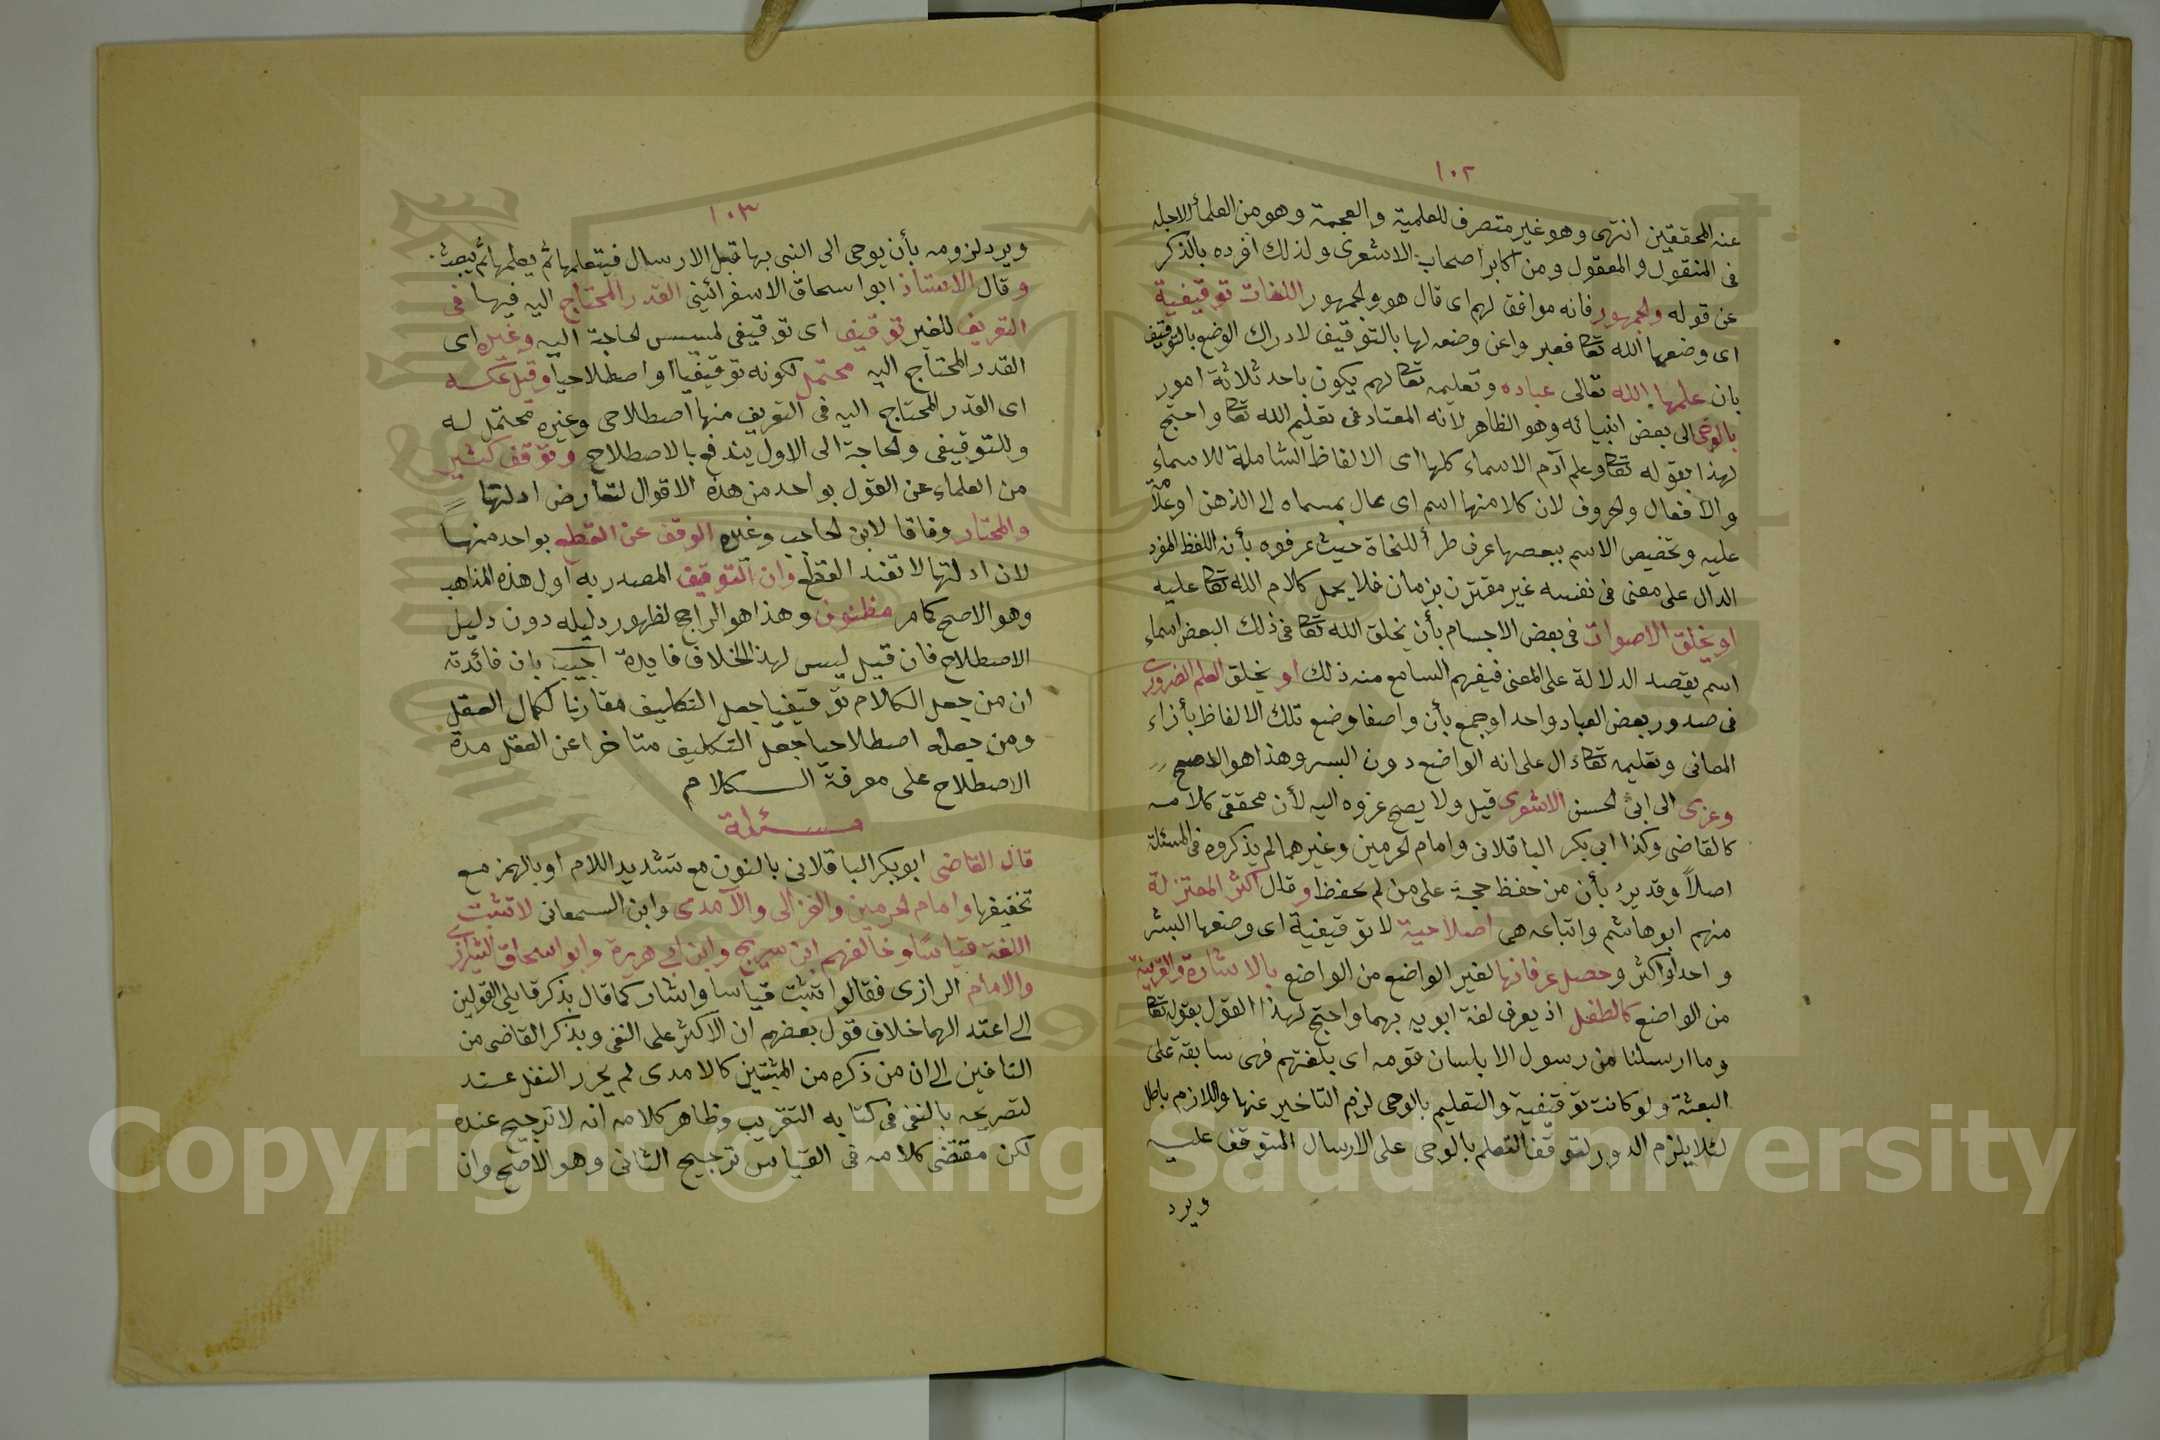 ١٠٢
عند المحققين انتهى وهو غير متصرف للعلمية والعجمة وهو من العلماء الاجله
فى المنقول والمعقول ومن اكابر اصحاب الاشعرى ولذلك افرده بالذكر
عن قوله والجمهور فانه موافق لهم اى قال هو والجمهور اللغات توقيفية
اى وضعها الله تعا فعبروا عن وضعه لها بالتوقيف لادراك الوضع بالتوقيف
بان علمها الله تعالى عباده وتعليمه تعا لهم يكون باحد ثلاثة امور
بالوحى الى بعض انبيائه وهو الظاهر لانه المعتاد فى تعليم الله تعا واحتج
لهذا بقوله تعا وعلم آدم الاسماء كلها اى الالفاظ الشاملة للاسماء
والافعال والحروف لان كلا منها اسم اى عال بمسماه الى الذهن او علامة
عليه وتخصيص الاسم ببعضها عرف طرأ للنحاة حيث عرفوه بأنه اللفظ المفرد
الدال على معنى فى نفسه غير مقترن بزمان فلا يحمل كلام الله تعا عليه
او يخلق الاصوات فى بعض الاجسام بأن يخلق الله تعا فى ذلك البعض اسماء
اسم يقصد الدلالة على المعنى فيفهم السامع منه ذلك او يخلق العلم الضرورى
فى صدور بعض العباد واحد او جمع بأن واصفا وضع تلك الالفاظ بأزاء
المعانى وتعليمه تعا دال على انه الواضع دون البسر وهذا هو الاصح
وعزى الى ابى الحسن الاشعرى قيل ولا يصح عزوه اليه لأن محققى كلامه
كالقاضى وكذا ابى بكر الباقلانى وامام الحرمين وغيرهما لم يذكروه فى المسئلة
اصلاً وقد يرد بأن من حفظ حجة على من لم يحفظ وقال اكثر المعتزلة
منهم ابو هاشم واتباعه هى اصلاحية لا توقيفية اى وضعها البشر
واحد او اكثر وحصل عرفانها لغير الواضع من الواضع بالاشارة والقرينة
من الواضع كالطفل اذ يعرف لغة ابويه بهما واحتج لهذا القول بقوله تعا
وما ارسلنا من رسول الا بلسان قومه اى بلغتهم فهى سابقة على
البعثة ولو كانت توقيفية والتعليم بالوحى لزم التاخير عنها واللازم باطل
لئلا يلزم الدور لتوقف التعلم بالوحى على الارسال المتوقف عليه
ويرد
١٠٣
ويرد لزومه بأن يوحى الى النبى بها قبل الارسال فيتعلمها ثم يعلمها ثم يبعث
وقال الاستاذ ابو اسحاق الاسفرائينى القدر المحتاج اليه فيها فى
التعريف للغير توقيف اى توقيفى لمسيس لحاجة اليه وغيره اى
القدر المحتاج اليه محتمل لكونه توقيفيا او اصطلاحيا وقيل عكسه
اى القدر المحتاج اليه فى التعريف منها اصطلاحى وغيره محتمل له
وللتوقيفى ولحاجة الى الاول يندفع بالاصطلاح وتوقف كثير
من العلماء عن القول بواحد من هذه الاقوال لتعارض ادلتها
والمختار وفاقا لابن لحاجب وغيره الوقف عن القطع بواحد منها
لان ادلتها لا تفيد القطع وان التوقيف المصدر به اول هذه المذاهب
وهو الاصح كما مر مظنون وهذا هو الراجح لظهور دليله دون دليل
الاصطلاح فان قيل ليس لهذا الخلاف فايدة اجيب بان فائدته
ان من جعل الكلام توقيفيا جعل التكليف مقارنا لكمال العقل
ومن جعله اصطلاحيا جعل التكليف متاخرا عن العقل مدة
الاصطلاح على معرفة الكلام
مسئلة
قال القاضى ابو بكر الباقلانى بالنون مع تشديد اللام او بالهمز مع
تخفيفها وامام لحرمين والغزالى والآمدى وابن السمعانى لا تثبت
اللغة قياسًا وخالفهم ابن سريج وابن ابى هريرة وابو اسحاق الشيرازى
والامام الرازى فقالوا تثبت قياسا واشار كما قال بذكر قايلى القولين
الى اعتد الهما خلاف قول بعضهم ان الاكثر على النفى وبذكر القاضى من
النافين الى ان من ذكره من المثبتين كالامدى لم يحرر النقل عند
لتصريحه بالنفى فى كتابه التقريب وظاهر كلامه انه لا ترجيح عنده
لكن مقتضى كلامه فى القياس ترجيح الثانى وهو الاصح وان
Copyright © King Saud University